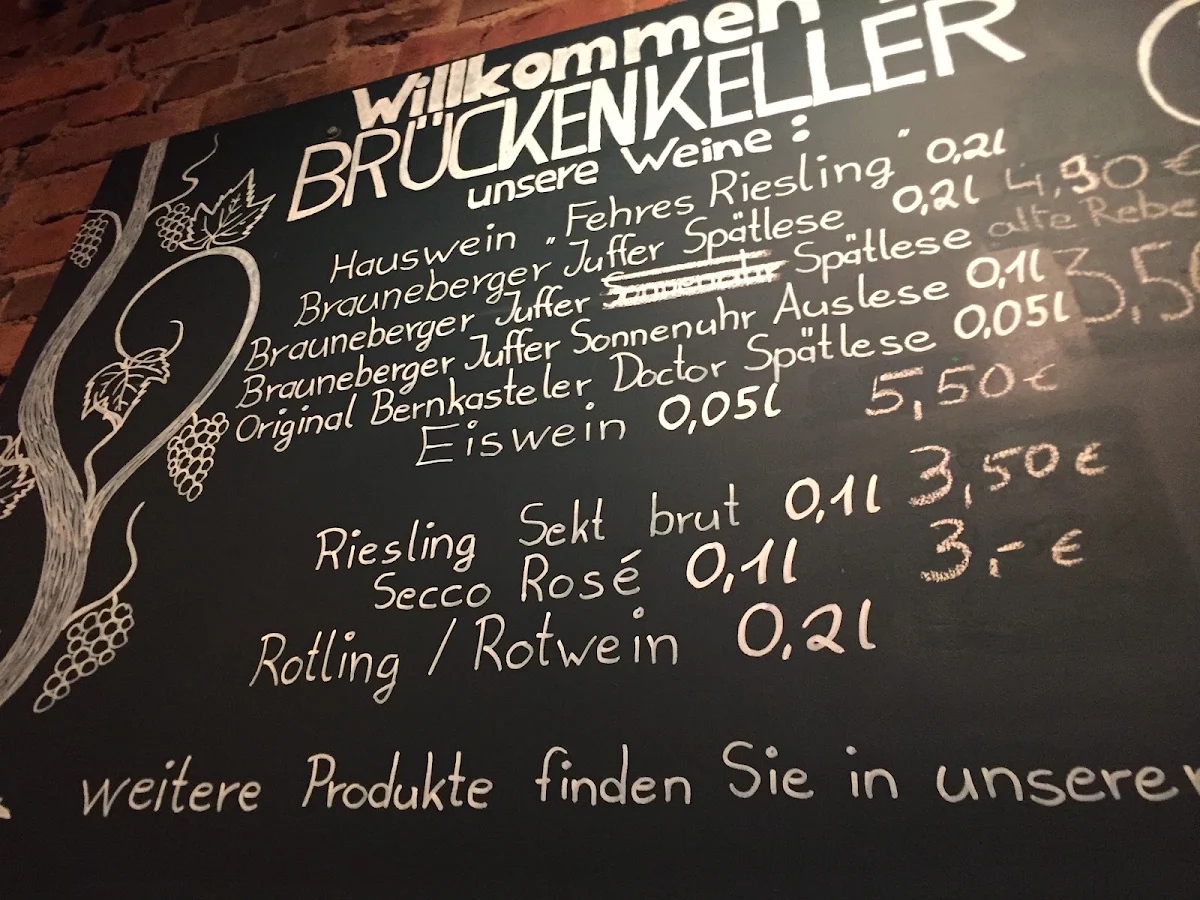 Willkommen
BRÜCKENKELLER
unsere Weine :
Hauswein "Fehres Riesling" 0,2l
Brauneberger Juffer Spätlese 0,2l 4,90 €
Brauneberger Juffer Sonnenuhr Spätlese alte Rebe
Brauneberger Juffer Sonnenuhr Auslese 0,1l 3,50
Original Bernkasteler Doctor Spätlese 0,05l
Eiswein 0,05l 5,50€
Riesling Sekt brut 0,1l 3,50€
Secco Rosé 0,1l 3,- €
Rotling / Rotwein 0,2l
weitere Produkte finden Sie in unserer